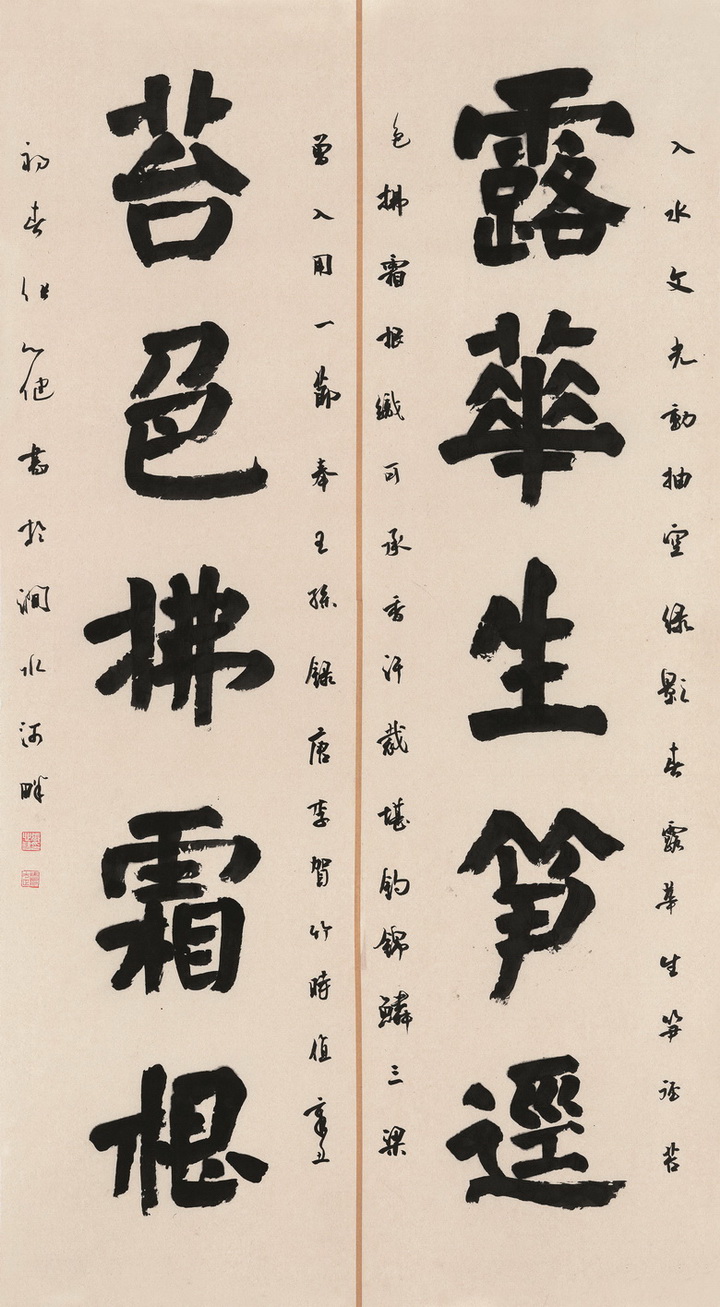 入水文光動抽空綠影春露華生笋徑苔
露華生笋逕
色拂霜根織可承香汗裁堪釣錦鱗三梁
曾入用一節奉王孫錄唐李賀竹時值辛丑
苔色拂霜根
初春心健書於澗水河畔